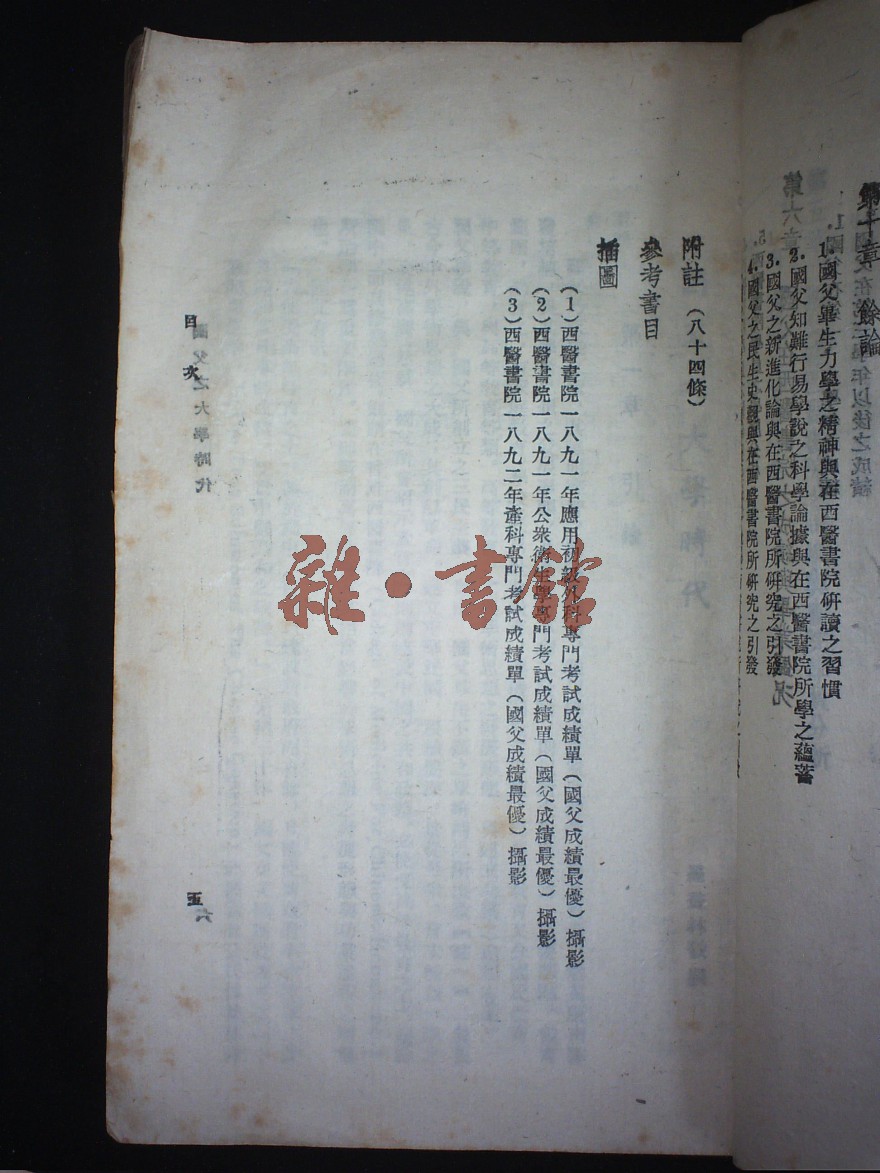 第十章 餘論
1.國父畢生力學之精神與在西醫書院研讀之習慣
2.國父知難行易學說之科學論據與在西醫書院所學之蘊蓄
3.國父之新進化論與在西醫書院所研究之引發
4.國父之民生史觀與在西醫書院所研究之引發
附註（八十四條）
參考書目
插圖
（1）西醫書院一八九一年應用初級外科專門考試成績單（國父成績最優）攝影
（2）西醫書院一八九一年公衆衛生學專門考試成績單（國父成績最優）攝影
（3）西醫書院一八九二年產科專門考試成績單（國父成績最優）攝影
國父之大學時代
目次
六
雜·書館